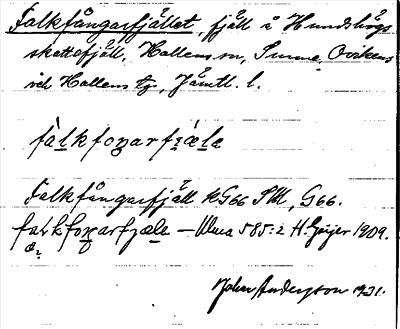 Falkfångarfjället fjäll å Hundshögs
skattefjäll, Hallens sn, Sunne, Ovikens
och Hallens tg, Jämtl. l.
fàlkfoŋarfjæle
Falkfångarfjäll kG66 SW, G66.
falkfoŋarfjæle — Ulma 585:2 H. Geijer 1909.
John Andersson 1931.